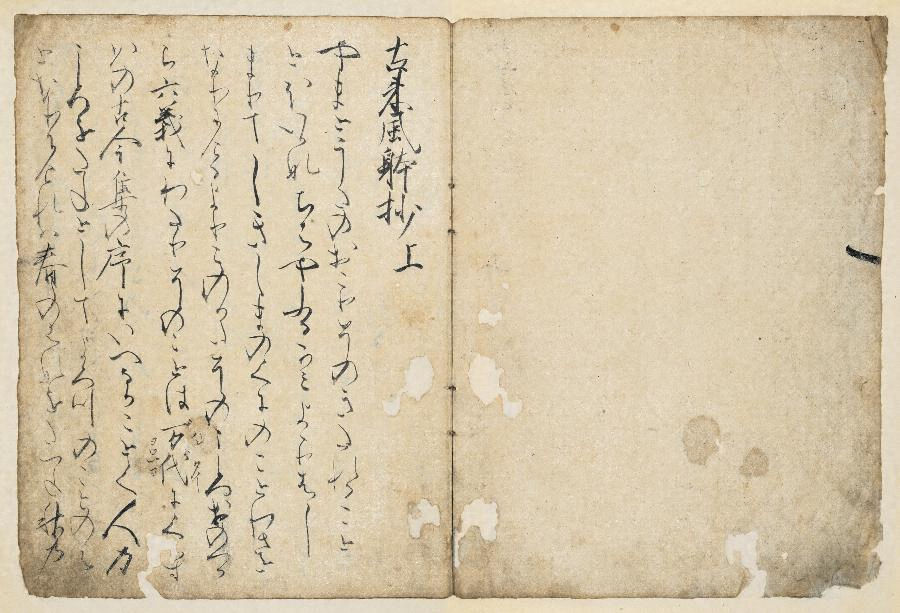 古来風躰抄 上
やまとうたのおこりそのきたれること
とほいかなちはやふるかみよよりはし
まりてしきしまのくにのことわさと
なりにけるよりこのかたそのこころおのつか
ら六義にわたりそのことは万代にくちす
かの古今集の序にいへることく人の
こころをたねとしてよろつのことのは
となりにけれは春のはなをたつね秋の